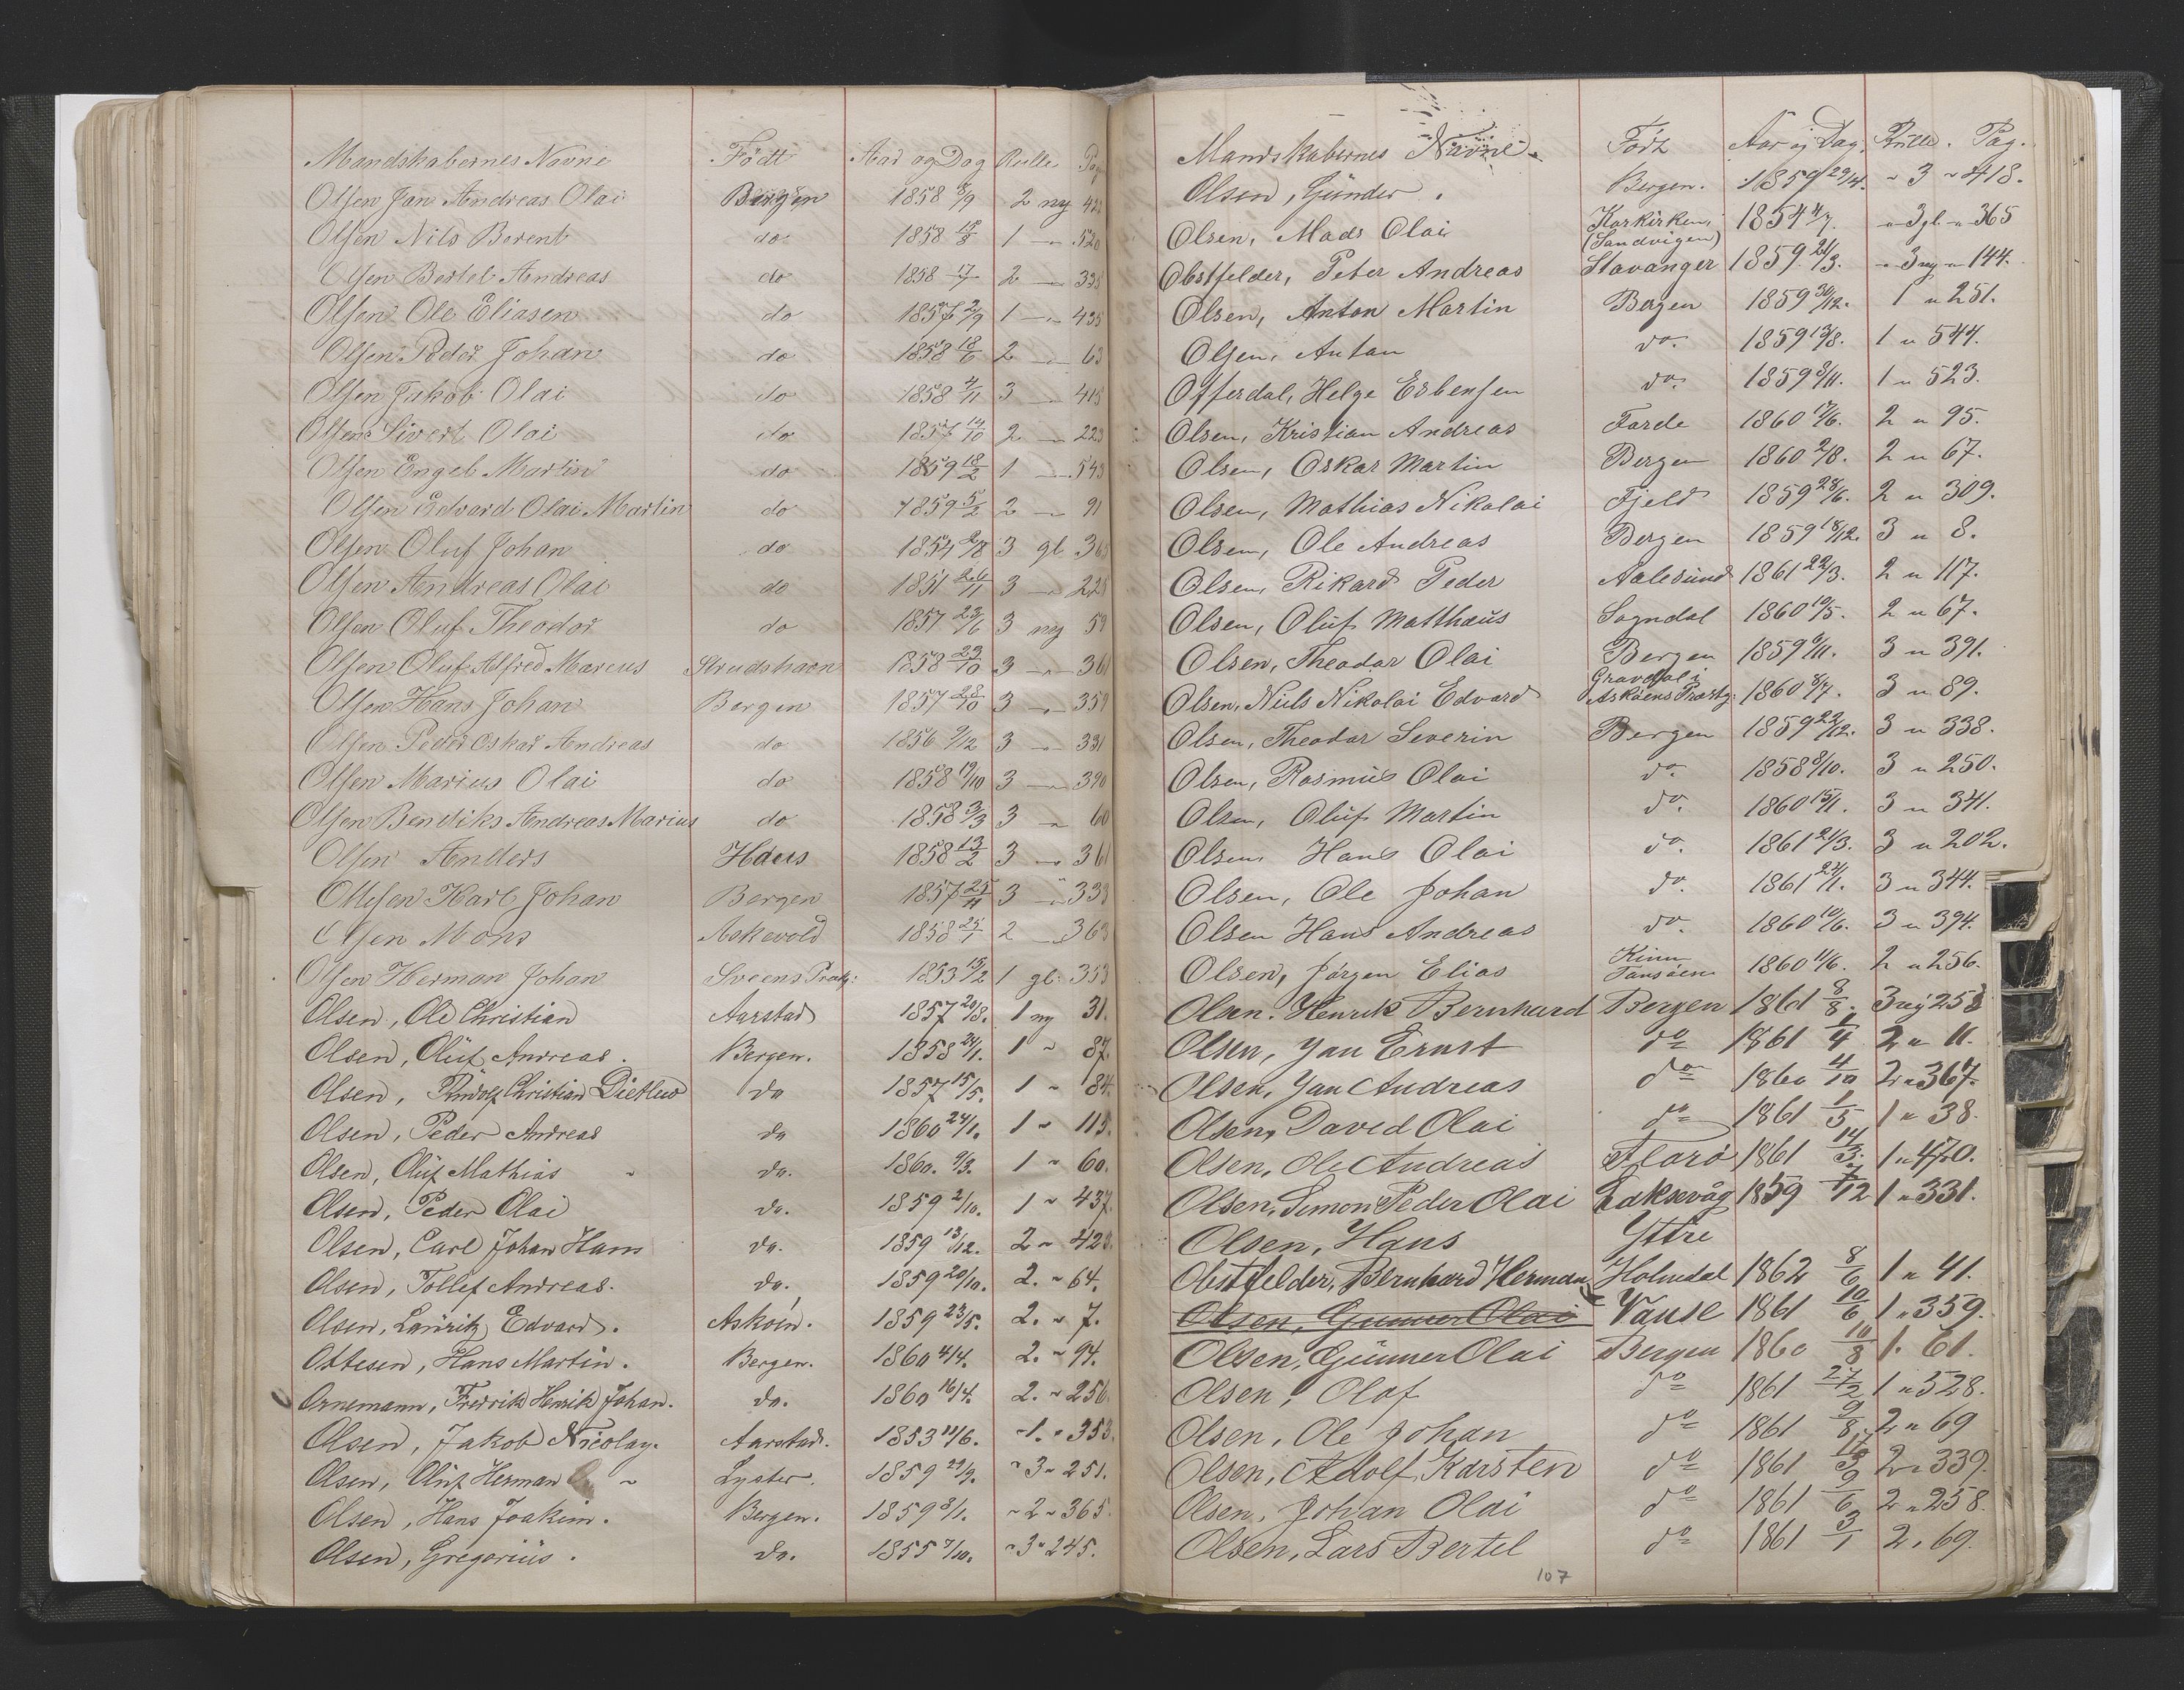 Mandskabernes Navne Födt Aar og Dag Rulle Pag
Olsen Jan Andreas Olai Bergen 1858 8/9 2 ny 422
Olsen Nils Berent do 1858 18/8 1 - 520
Olsen Bertel Andreas do 1858 17/7 2 - 338
Olsen Ole Eliasen do 1857 2/9 1 - 435
Olsen Peder Johan do 1858 18/6 2 - 63
Olsen Jakob Olai do 1858 4/11 3 - 415
Olsen Sivert Olai do 1857 14/10 2 - 223
Olsen Engel Martin do 1859 18/2 1 - 543
Olsen Edvard Olai Martin do 1859 5/2 2 - 91
Olsen Oluf Johan do 1854 2/8 3 gl 365
Olsen Andreas Olai do 1851 26/11 3 - 228
Olsen Oluf Theodor do 1857 23/6 3 ny 59
Olsen Oluf Alfred Marcus Strudshavn 1858 23/10 3 - 361
Olsen Hans Johan Bergen 1857 28/10 3 - 359
Olsen Peder Oskar Andreas do 1856 9/12 3 - 331
Olsen Marius Olai do 1858 19/10 3 - 390
Olsen Bendiks Andreas Marius do 1858 3/3 3 - 60
Olsen Anders Haus 1858 13/2 3 - 361
Ottesen Karl Johan Bergen 1857 25/11 3 - 333
Olsen Mons Askevold 1858 25/1 2 - 363
Olsen Herman Johan Sveens Prætg: 1853 15/12 1 gl. 353
Olsen, Ole Christian Aarstad 1857 20/8. 1 ny 31.
Olsen, Olüf Andreas. Bergen. 1858 24/1. 1 " 87.
Olsen, Rüdolf Christian Dietlew do 1857 15/5. 1 " 84.
Olsen, Peder Andreas do 1860 24/1. 1 " 115.
Olsen, Olüf Mathias do. 1860. 9/3. 1 " 60.
Olsen, Peder Olai do. 1859 2/10. 1 " 437.
Olsen, Carl Johan Hans do. 1859 13/12. 2 " 423.
Olsen, Tollef Andreas. do. 1859 20/10. 2. " 64.
Olsen, Laüritz Edvard. Asköen. 1859 23/5. 2. " 7.
Ottesen, Hans Martin. Bergen. 1860 4/4. 2. " 94.
Ornemann, Fredrik Henrik Johan. do. 1860 16/4. 2. " 256.
Olsen, Jakob Nicolay. Aarstad. 1853 11/6. " 1. " 353.
Olsen, Olüf Herman Lyster. 1859 29/9. " 3 " 251.
Olsen, Hans Joakim. Bergen. 1859 8/1. " 2 " 365.
Olsen, Gregoriüs. do. 1855 7/10. " 3 " 245.
Mandskabernes Navne. Födt Aar og Dag. Rulle. Pag.
Olsen, Günder. Bergen. 1859 29/4. " 3 " 418.
Olsen, Mads Olai Korkirken, (Sandvigen) 1854 4/7. " 3 gl " 365
Obstfelder, Peter Andreas Stavanger 1859 24/3. " 3 ny " 144.
Olsen, Anton Martin Bergen 1859 30/12. 1 " 251.
Olsen, Anton do. 1859 13/8. 1 " 544.
Offerdal, Helge Esbensen do. 1859 8/11. 1 " 523.
Olsen, Kristian Andreas Förde 1860 17/6. 2 " 95.
Olsen, Oskar Martin Bergen 1860 2/8. 2 " 67.
Olsen, Mathias Nikolai Fjeld 1859 28/6. 2 " 309.
Olsen, Ole Andreas Bergen 1859 18/12. 3 " 8.
Olsen, Rikard Peder Aalesünd 1861 22/3. 2 " 117.
Olsen, Olüf Matthæüs Sogndal 1860 10/5. 2 " 67.
Olsen, Theodor Olai Bergen 1859 6/11. 3 " 391.
Olsen, Niels Nikolai Edvard Gravdal i Asköens Præstg: 1860 8/7. 3 " 89.
Olsen, Theodor Severin Bergen 1859 22/12. 3 " 338.
Olsen, Rasmüs Olai do. 1858 8/10. 3 " 250.
Olsen, Olüf Martin do. 1860 15/1. 3 " 341.
Olsen, Hans Olai do. 1861 21/3. 3 " 202.
Olsen, Ole Johan do. 1861 24/1. 3 " 344.
Olsen Hans Andreas do. 1860 10/6. 3 " 394.
Olsen, Jörgen Elias Kinn 1860 11/6. 2 " 256.
Olsen. Henrik Bernhard Bergen 1861 8/8. 3 ny 253
Olsen, Jan Ernst do 1861 1/4 2 " 11.
Olsen, Jan Andreas do 1860 4/10 2 " 367.
Olsen, David Olai do 1861 1/5 1 " 38.
Olsen, Ole Andreas Florö 1861 14/3. 1 " 470.
Olsen, Simon Peder Olai Laksevåg 1859 7/12 1 " 331.
Olsen, Hans Yttre Holmdal 1862 8/6 1 " 41.
Obstfelder, Bernhard Herman Vanse 1861 10/6 1 " 359.
Olsen, Gunner Olai
Olsen, Günner Olai Bergen 1860 10/8 1. 61.
Olsen, Olaf do 1861 27/2 1 " 528.
Olsen, Ole Johan do 1861 9/8 2 " 69
Olsen, Adolf Karsten do 1861 2 " 339.
Olsen, Johan Olai do 1861 9/6 2 " 258.
Olsen, Lars Bertel do 1861 3/1 2 " 69.
107